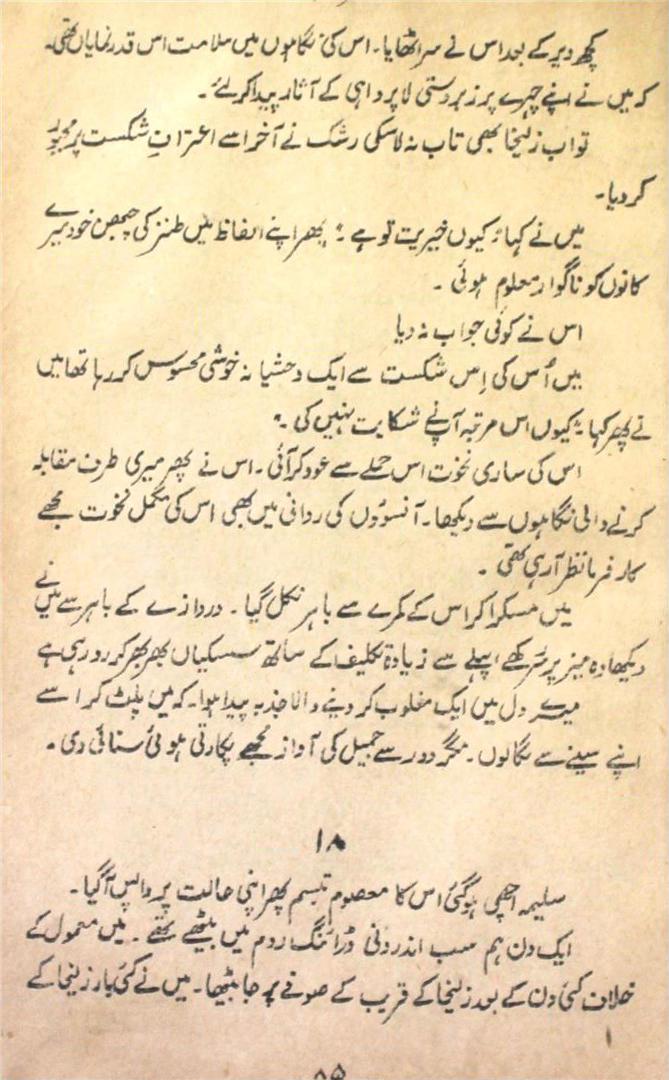 کچھ دیر کے بعد اس نے سر اٹھایا۔ اس کی نگاہوں میں ملامت اس قدر نمایاں تھی۔
کہ میں نے اپنے چہرے پر زبردستی لاپرواہی کے آثار پیدا کر لئے۔
تو اب زلیخا بھی تاب نہ لا سکی رشک نے آخر اسے اعترافِ شکست پر مجبور
کر دیا۔
میں نے کہا "کیوں خیریت تو ہے۔" پھر اپنے الفاظ میں طنز کی چبھن خود میرے
کانوں کو ناگوار معلوم ہوئی۔
اس نے کوئی جواب نہ دیا
میں اُس کی اِس شکست سے ایک وحشیانہ خوشی محسوس کر رہا تھا میں
نے پھر کہا "کیوں اس مرتبہ آپنے شکایت نہیں کی۔"
اس کی ساری نخوت اس حملے سے عود کر آئی۔ اس نے پھر میری طرف مقابلہ
کرنے والی نگاہوں سے دیکھا۔ آنسوؤں کی روانی میں بھی اس کی مکمل نخوت مجھے
کار فرما نظر آ رہی تھی۔
میں مسکرا کر اس کے کمرے سے باہر نکل گیا۔ دروازے کے باہر سے میں نے
دیکھا وہ میز پر سر رکھے پہلے سے زیادہ تکلیف کے ساتھ سسکیاں بھر بھر کر رو رہی ہے
میرے دل میں ایک مغلوب کر دینے والا جذبہ پیدا ہوا۔ کہ میں پلٹ کر اسے
اپنے سینے سے لگا لوں۔ مگر دور سے جمیل کی آواز مجھے پکارتی ہوئی سنائی دی۔
۱۸
سلیمہ اچھی ہو گئی اس کا معصوم تبسم پھر اپنی حالت پر واپس آ گیا۔
ایک دن ہم سب اندرونی ڈرائنگ روم میں بیٹھے تھے۔ میں معمول کے
خلاف کئی دن کے بعد زلیخا کے قریب کے صوفے پر جا بیٹھا۔ میں نے کئی بار زلیخا کے
۸۵